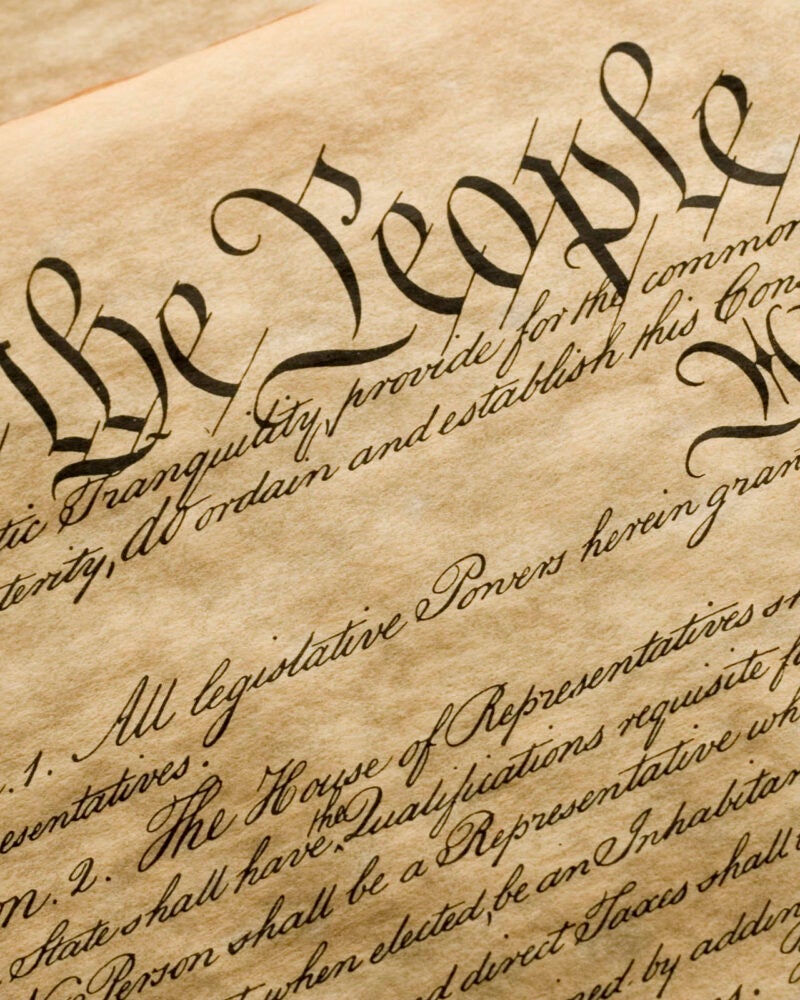 the People
tic Tranquility, provide for the common
terity, do ordain and establish this Con
. 1. All legislative Powers herein gran
esentatives.
on. 2. The House of Representatives sh
State shall have the Qualifications requisite fo
Person shall be a Representative who
t when elected, be an Inhabitan
d direct Taxes shall
ned by adding